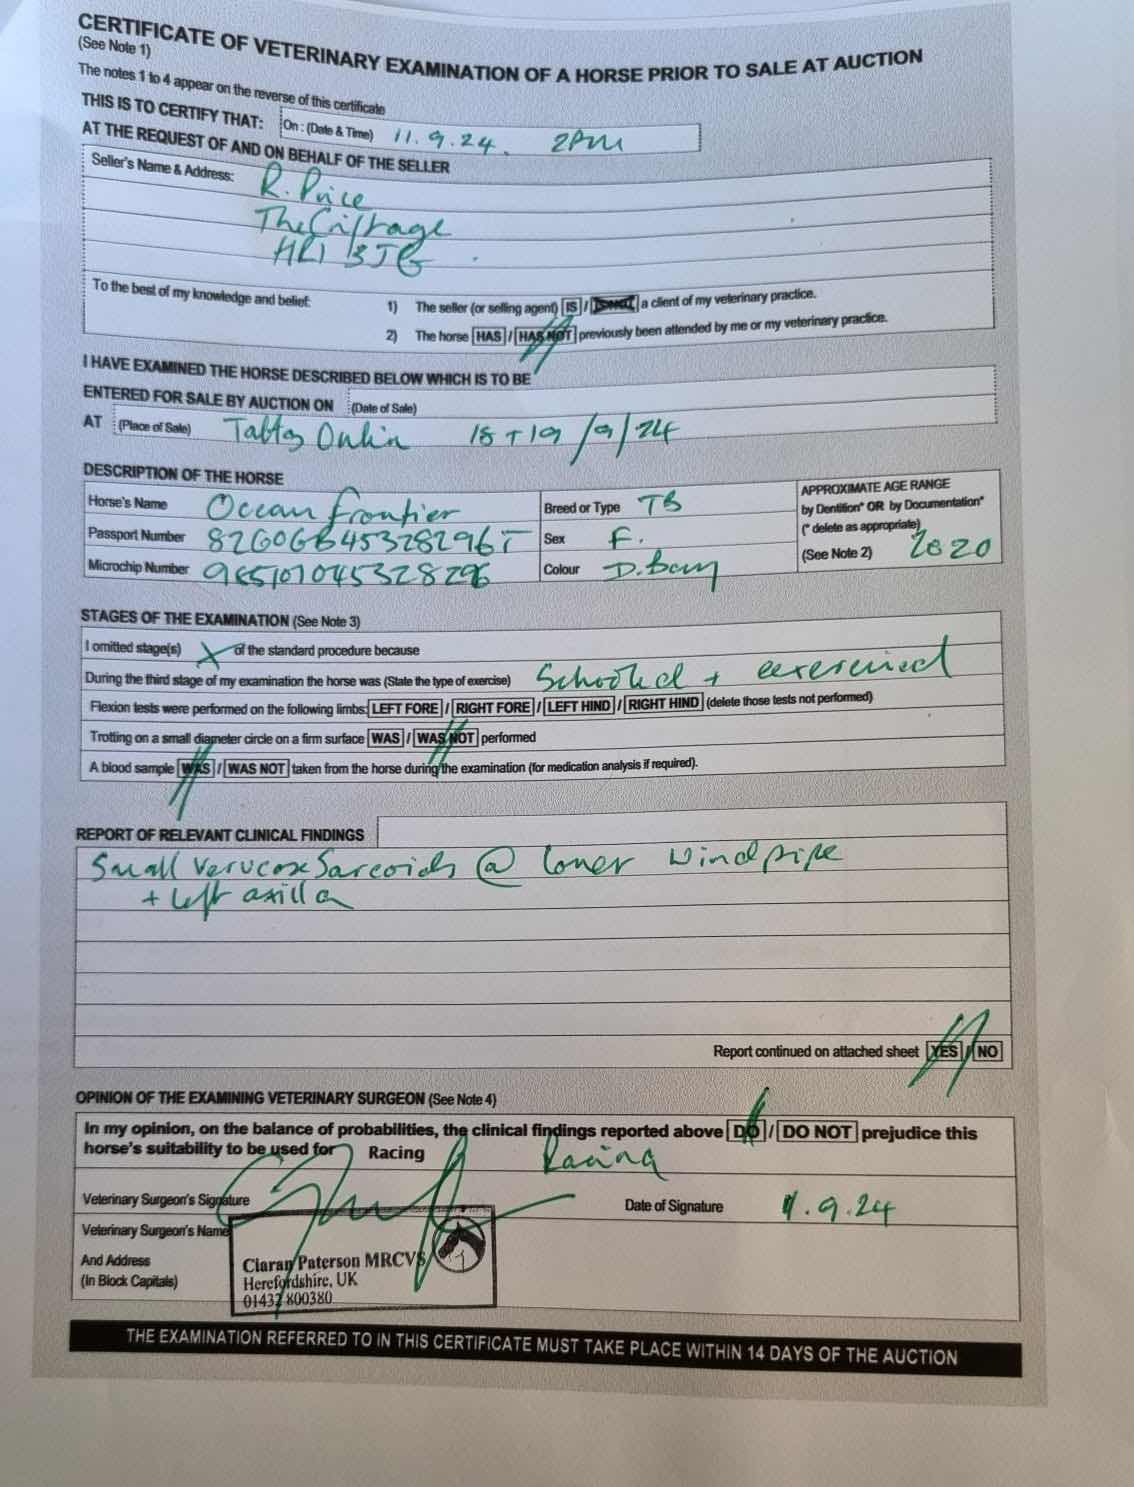 CERTIFICATE OF VETERINARY EXAMINATION OF A HORSE PRIOR TO SALE AT AUCTION
(See Note 1)
The notes 1 to 4 appear on the reverse of this certificate
THIS IS TO CERTIFY THAT: On : (Date & Time) 11.9.24. 2PM
AT THE REQUEST OF AND ON BEHALF OF THE SELLER
Seller's Name & Address: R. Price
The
HR1 3JG
To the best of my knowledge and belief: 1) The seller (or selling agent) IS / a client of my veterinary practice.
2) The horse HAS / HAS NOT previously been attended by me or my veterinary practice.
I HAVE EXAMINED THE HORSE DESCRIBED BELOW WHICH IS TO BE
ENTERED FOR SALE BY AUCTION ON (Date of Sale)
AT (Place of Sale) 18 + 19/9/24
DESCRIPTION OF THE HORSE
Horse's Name Ocean Frontier Breed or Type TB
Passport Number 826GGB45328296T Sex F.
Microchip Number Colour D. Bay
APPROXIMATE AGE RANGE
by Dentition* OR by Documentation*
(* delete as appropriate)
(See Note 2) 2020
STAGES OF THE EXAMINATION (See Note 3)
I omitted stage(s) X of the standard procedure because
During the third stage of my examination the horse was (State the type of exercise) Schooled + exercised
Flexion tests were performed on the following limbs: LEFT FORE / RIGHT FORE / LEFT HIND / RIGHT HIND (delete those tests not performed)
Trotting on a small diameter circle on a firm surface WAS / WAS NOT performed
A blood sample WAS / WAS NOT taken from the horse during the examination (for medication analysis if required).
REPORT OF RELEVANT CLINICAL FINDINGS
Small verucose Sarcoids @ lower windpipe
+ left axilla
Report continued on attached sheet YES / NO
OPINION OF THE EXAMINING VETERINARY SURGEON (See Note 4)
In my opinion, on the balance of probabilities, the clinical findings reported above DO / DO NOT prejudice this
horse's suitability to be used for Racing Racing
Veterinary Surgeon's Signature Date of Signature 11.9.24
Veterinary Surgeon's Name
And Address
(In Block Capitals)
Ciaran Paterson MRCVS
Herefordshire, UK
01432 800380
THE EXAMINATION REFERRED TO IN THIS CERTIFICATE MUST TAKE PLACE WITHIN 14 DAYS OF THE AUCTION